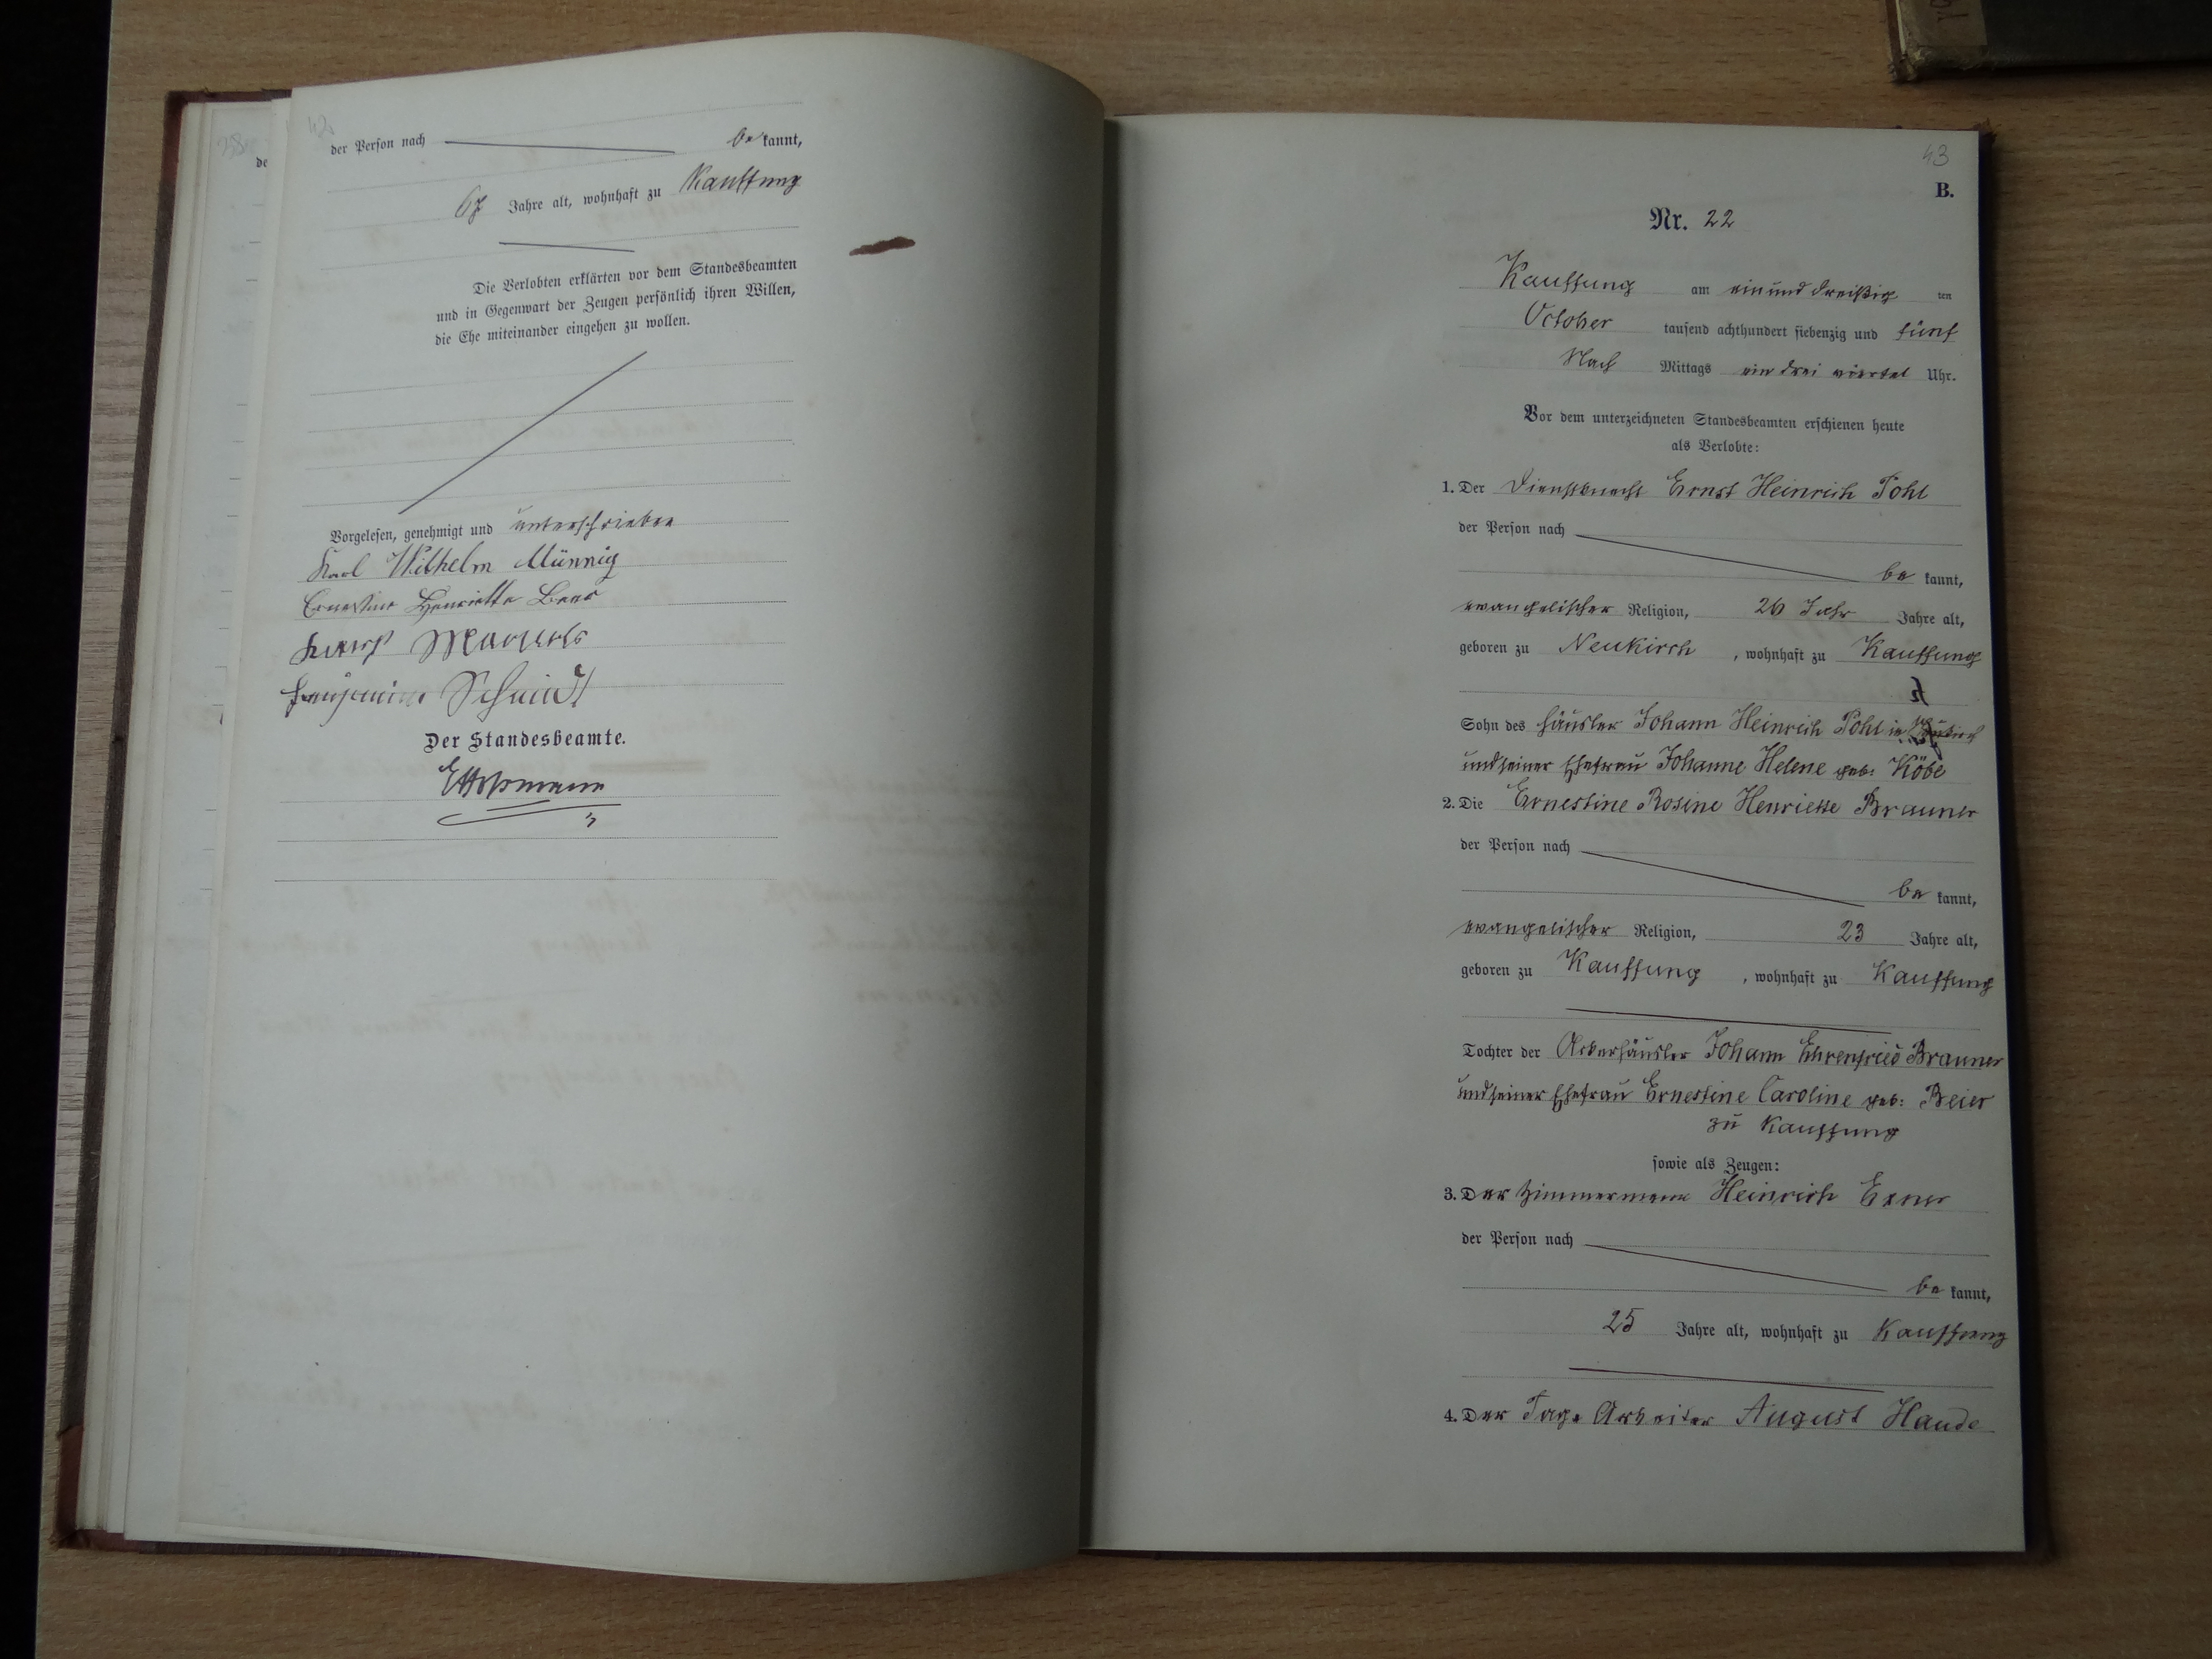 42
der Person nach be kannt,
67 Jahre alt, wohnhaft zu Kauffung
Die Verlobten erklärten vor dem Standesbeamten
und in Gegenwart der Zeugen persönlich ihren Willen,
die Ehe miteinander eingehen zu wollen.
Vorgelesen, genehmigt und unterschrieben
Karl Wilhelm Münnig
Ernestine Henriette Beer
Schmidt
Der Standesbeamte.
de
43
B.
Nr. 22
Kauffung am ein und dreißig ten
October tausend achthundert siebenzig und fünf
Nach Mittags ein drei viertel Uhr.
Vor dem unterzeichneten Standesbeamten erschienen heute
als Verlobte:
1. Der Dienstknecht Ernst Heinrich Pohl
der Person nach
be kannt,
evangelischer Religion, 26 Jahr Jahre alt,
geboren zu Neukirch , wohnhaft zu Kauffung
Sohn des Häusler Johann Heinrich Pohl in
und seiner Ehefrau Johanne Helene geb: Köbe
2. Die Ernestine Rosine Henriette Brauner
der Person nach
be kannt,
evangelischer Religion, 23 Jahre alt,
geboren zu Kauffung , wohnhaft zu Kauffung
Tochter der Ackerhäusler Johann Ehrenfried Brauner
und seiner Ehefrau Ernestine Caroline geb: Beier
zu Kauffung
sowie als Zeugen:
3. Der Zimmermann Heinrich Exner
der Person nach
be kannt,
25 Jahre alt, wohnhaft zu Kauffung
4. Der Tage Arbeiter August Haude